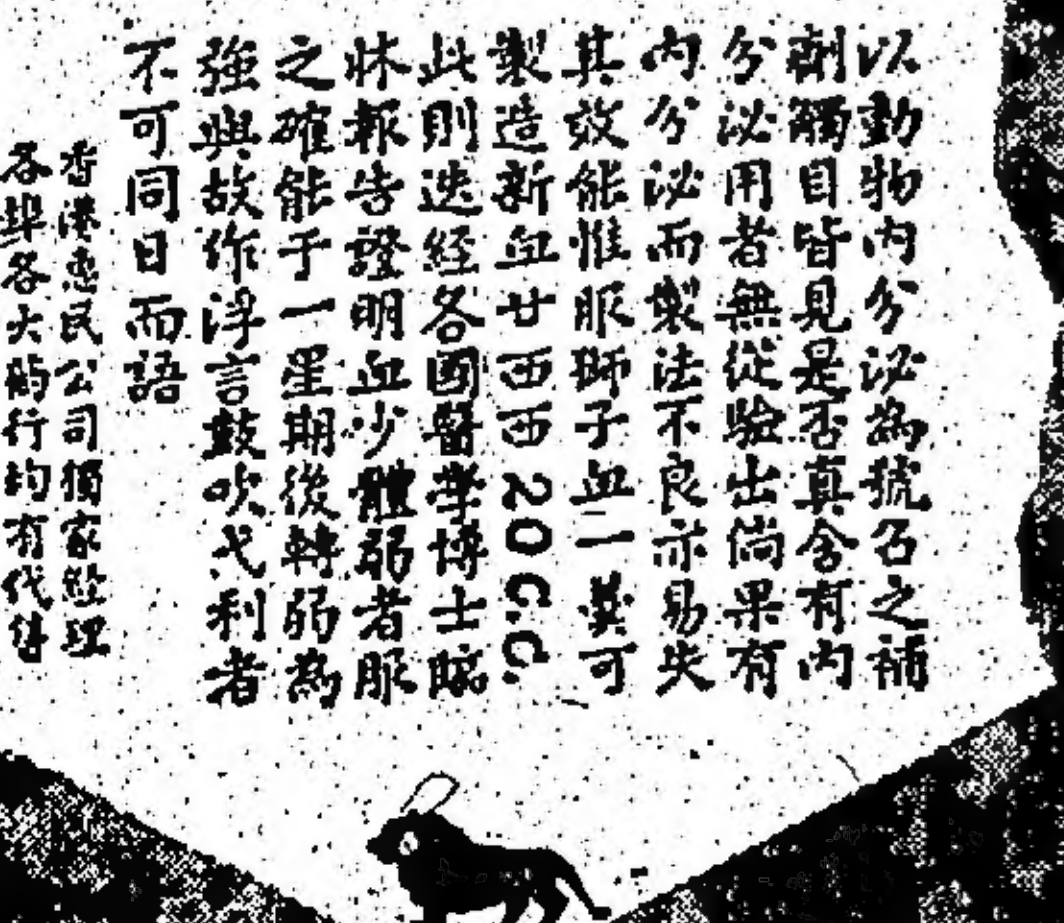 以動物內分泌為號召之補
劑觸目皆見是否真含有內
分泌用者無從驗出倘果有
內分泌而製法不良亦易失
其效能惟服獅子血一羹可
製造新血廿西西20C.C.
此則迭經各國醫學博士臨
牀報告證明血少體弱者服
之確能于一星期後轉弱為
強與故作浮言鼓吹弋利者
不可同日而語
香港惠民公司獨家經理
各埠各大葯行均有代售